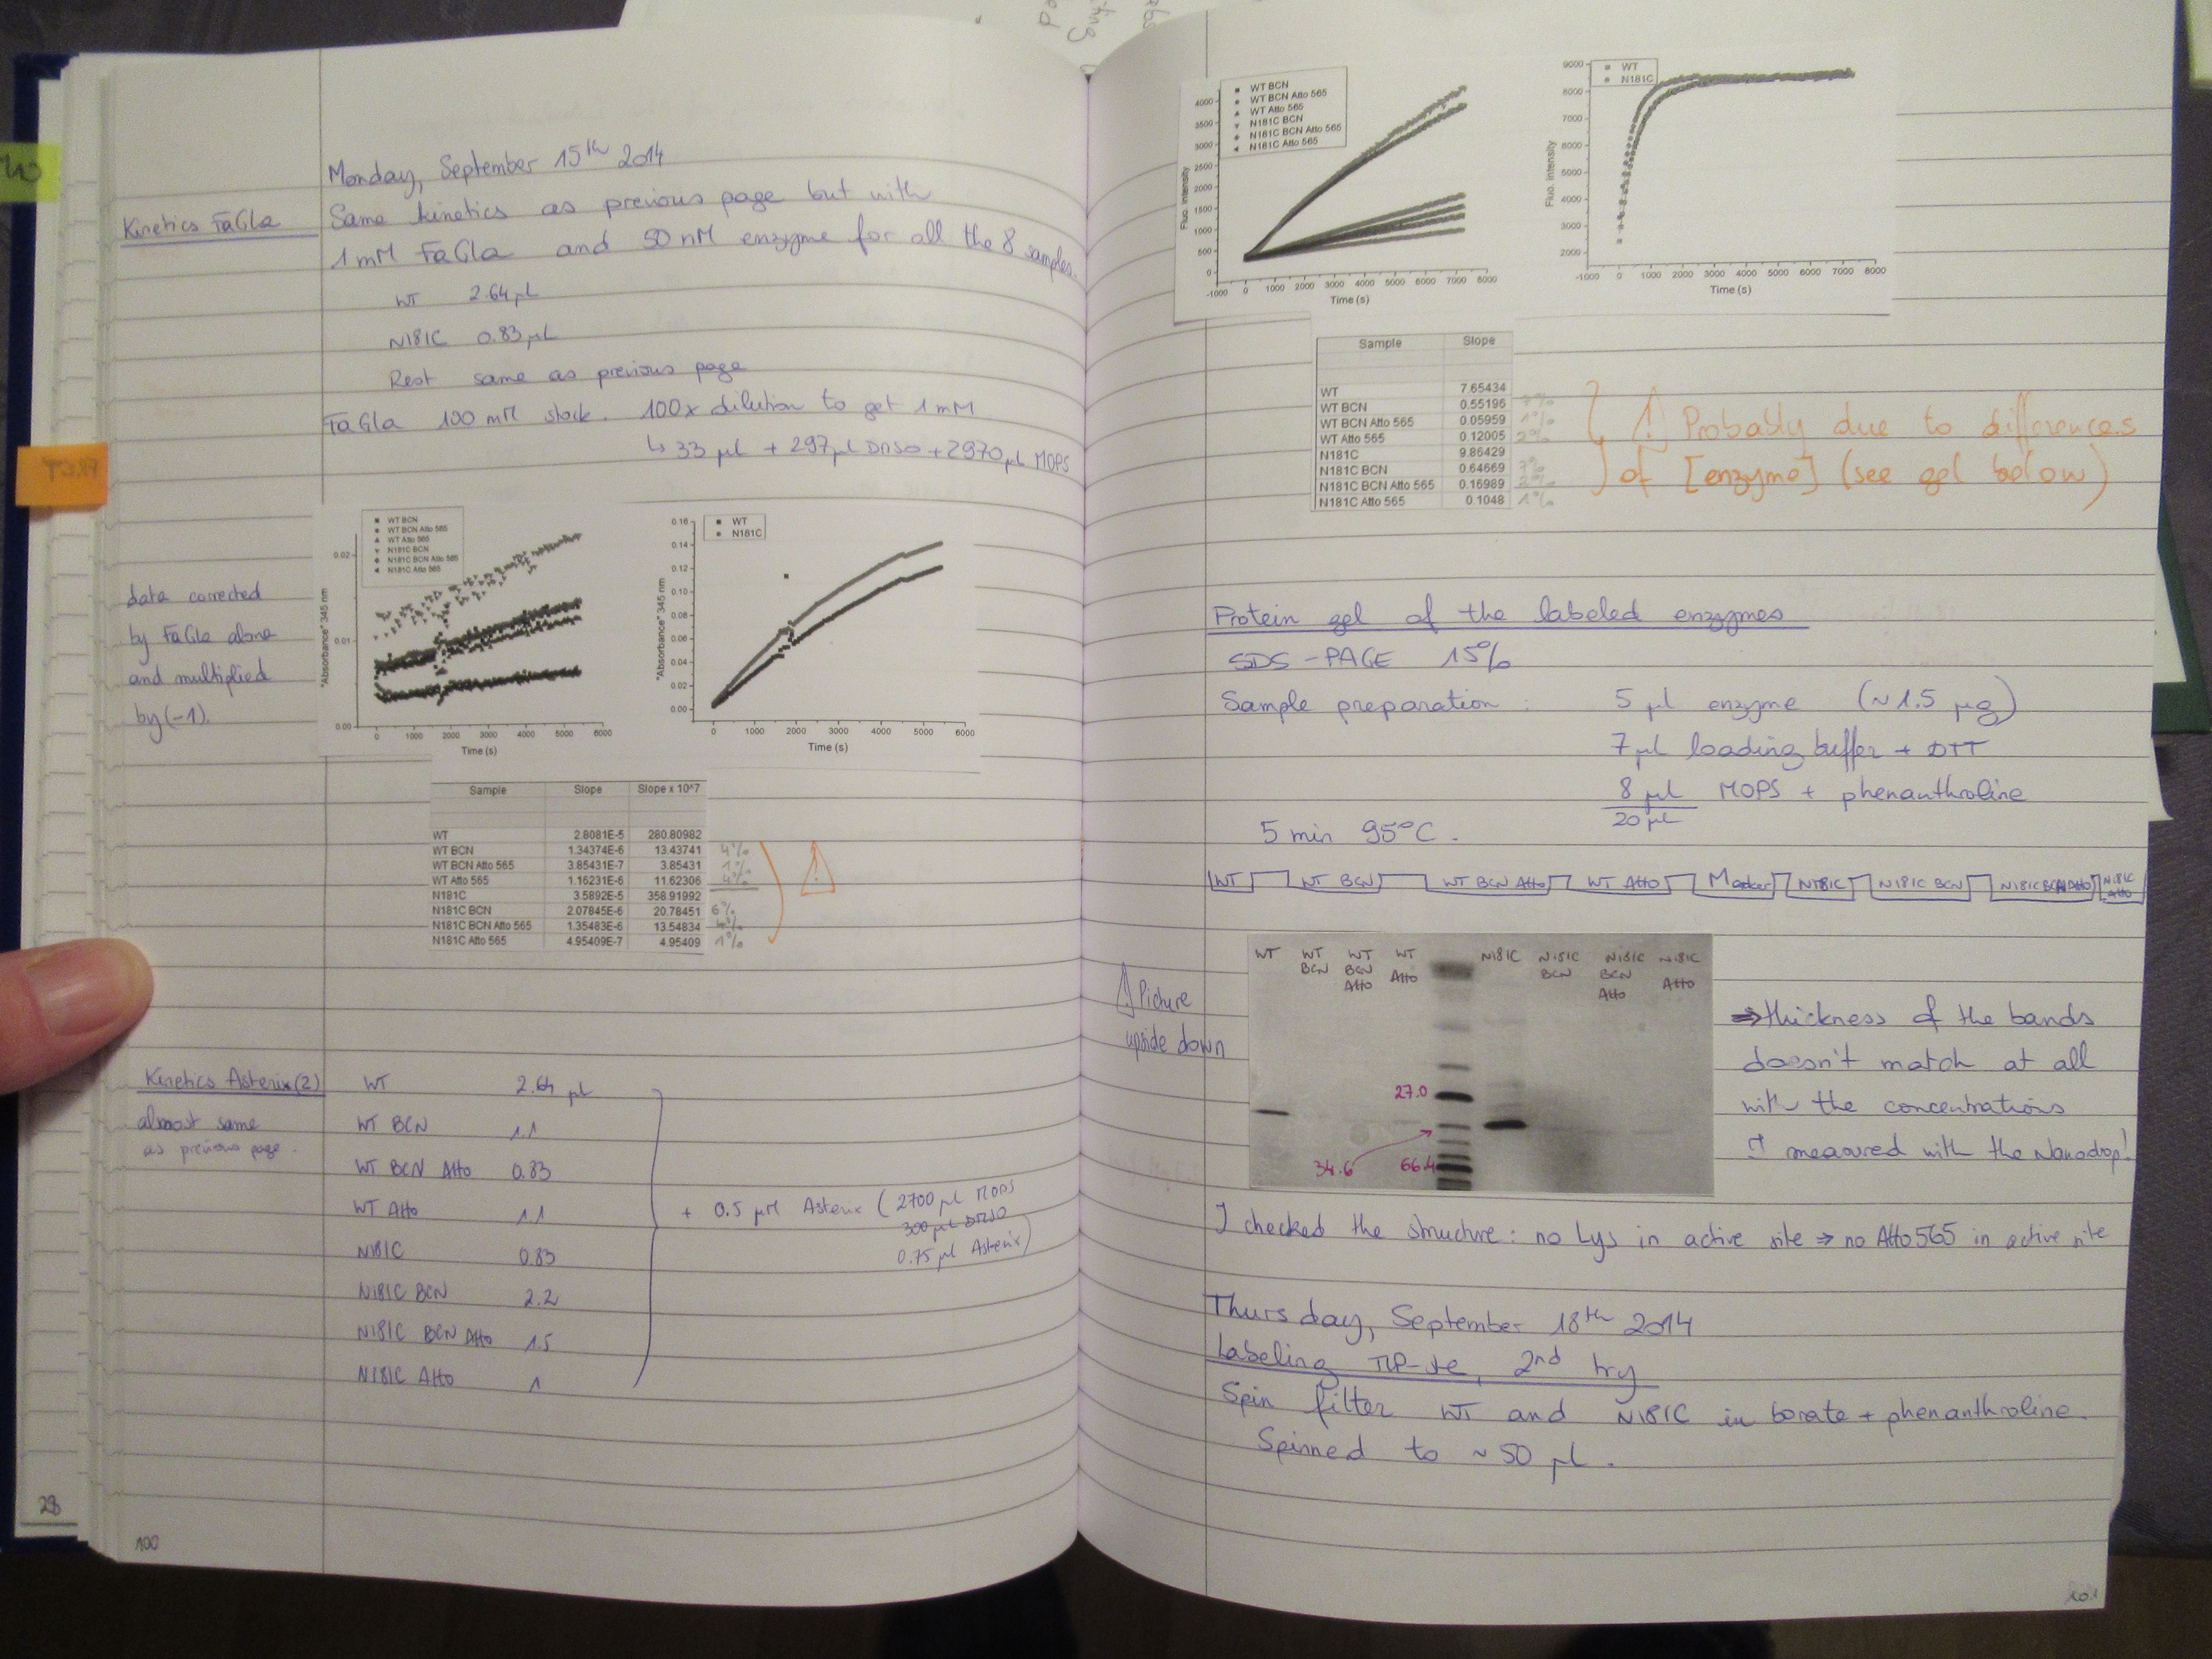 Monday, September 15th 2014
Kinetics FaGla
Same kinetics as previous page but with
1 mM FaGla and 50 nM enzyme for all the 8 samples.
WT 2.64 µl
N181C 0.83 µl
Rest same as previous page
FaGla 100 mM stock. 100x dilution to get 1 mM
↳ 33 µl + 297 µl DMSO + 2970 µl MOPS
data corrected
by FaGla alone
and multiplied
by (-1).
WT BCN
WT BCN Atto 565
WT Atto 565
N181C BCN
N181C BCN Atto 565
N181C Atto 565
"Absorbance" 345 nm
0.02
0.01
0.00
0 1000 2000 3000 4000 5000 6000
Time (s)
WT
N181C
"Absorbance" 345 nm
0.16
0.14
0.12
0.10
0.08
0.06
0.04
0.02
0.00
0 1000 2000 3000 4000 5000 6000
Time (s)
Sample Slope Slope x 10^7
WT 2.8081E-5 280.80982
WT BCN 1.34374E-6 13.43741 4%
WT BCN Atto 565 3.85431E-7 3.85431 1%
WT Atto 565 1.16231E-6 11.62306 4%
N181C 3.5892E-5 358.91992
N181C BCN 2.07845E-6 20.78451 6%
N181C BCN Atto 565 1.35483E-6 13.54834 4%
N181C Atto 565 4.95409E-7 4.95409 1%
!
Kinetics Asterix (2)
almost same
as previous page.
WT 2.64 µl
WT BCN 1.1
WT BCN Atto 0.83
WT Atto 1.1
N181C 0.83
N181C BCN 2.2
N181C BCN Atto 1.5
N181C Atto 1
+ 0.5 µM Asterix (2700 µl MOPS
300 µl DMSO
0.75 µl Asterix)
28
100
WT BCN
WT BCN Atto 565
WT Atto 565
N181C BCN
N181C BCN Atto 565
N181C Atto 565
Fluo. intensity
4000
3500
3000
2500
2000
1500
1000
500
0
-1000 0 1000 2000 3000 4000 5000 6000 7000 8000
Time (s)
WT
N181C
Fluo. intensity
9000
8000
7000
6000
5000
4000
3000
2000
-1000 0 1000 2000 3000 4000 5000 6000 7000 8000
Time (s)
Sample Slope
WT 7.65434
WT BCN 0.55196 7%
WT BCN Atto 565 0.05959 1%
WT Atto 565 0.12005 2%
N181C 9.86429
N181C BCN 0.64669 7%
N181C BCN Atto 565 0.16989 2%
N181C Atto 565 0.1048 1%
! Probably due to differences
of [enzyme] (see gel below)
Protein gel of the labeled enzymes
SDS-PAGE 15%
Sample preparation : 5 µl enzyme (~1.5 µg)
7 µl loading buffer + DTT
8 µl MOPS + phenanthroline
20 µl
5 min 95°C.
WT WT BCN WT BCN Atto WT Atto Marker N181C N181C BCN N181C BCN Atto N181C Atto
! Picture
upside down
WT
WT BCN
WT BCN Atto
WT Atto
N181C
N181C BCN
N181C BCN Atto
N181C Atto
27.0
34.6
66.4
⇒ thickness of the bands
doesn't match at all
with the concentrations
I measured with the Nanodrop!
I checked the structure: no Lys in active site ⇒ no Atto565 in active site
Thursday, September 18th 2014
Labeling 2nd try
Spin filter WT and N181C in borate + phenanthroline.
Spinned to ~50 µl.
101